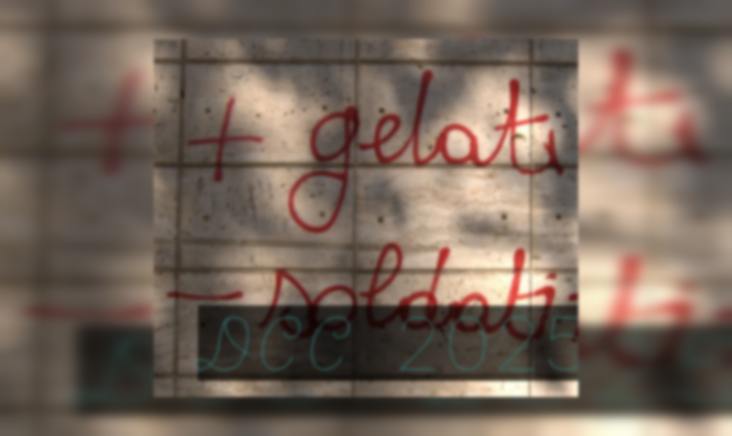 + gelati
- soldati
DCC 2025